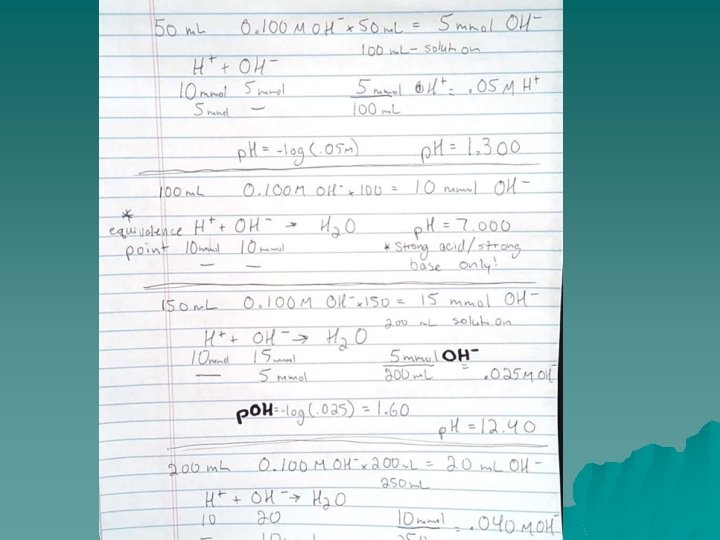 50 mL 0.100 M OH⁻ × 50 mL = 5 mmol OH⁻
100 mL - solution
H⁺ + OH⁻
10 mmol 5 mmol 5 mmol H⁺ = .05 M H⁺
5 mmol — 100 mL
pH = -log (.05M) pH = 1.300
100 mL 0.100 M OH⁻ × 100 = 10 mmol OH⁻
*
equivalence H⁺ + OH⁻ → H₂O pH = 7.000
point 10 mmol 10 mmol * Strong acid/strong
— — base only!
150 mL 0.100 M OH⁻ × 150 = 15 mmol OH⁻
200 mL solution
H⁺ + OH⁻ → H₂O
10 mmol 15 mmol 5 mmol OH⁻ = .025 M OH⁻
— 5 mmol 200 mL
pOH = -log (.025) = 1.60
pH = 12.40
200 mL 0.100 M OH⁻ × 200 mL = 20 mL OH⁻
250 mL
H⁺ + OH⁻ → H₂O
10 20 10 mmol = .040 M OH⁻